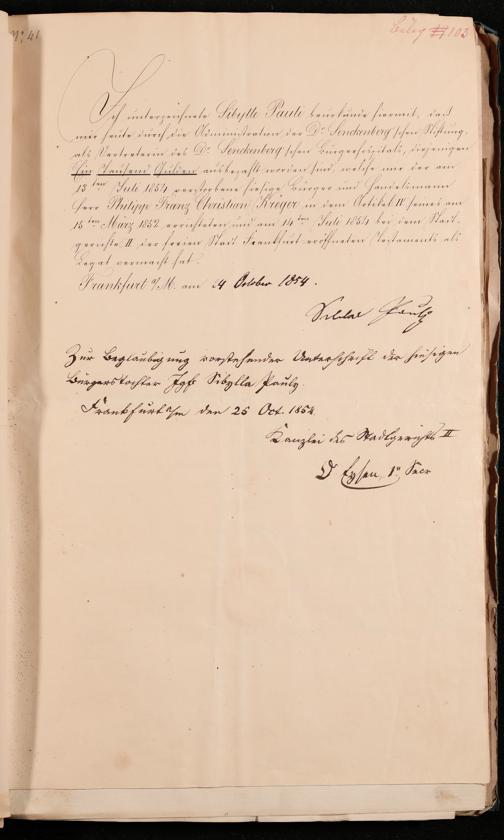 No 41
Beleg 103
Ich unterzeichnete Sibylle Pauli beurkunde hiermit, daß
mir heute durch die Administration der Dr. Senckenberg'schen Stiftung,
als Vertreterin des Dr. Senckenberg'schen Bürgerhospitals, diejenigen
Ein Tausend Gulden ausbezahlt worden sind, welche mir der am
13ten Juli 1854 verstorbene hiesige Bürger und Handelsmann
Herr Philipp Franz Christian Kreger in dem Artikel IV seines am
15ten März 1852 errichteten und am 14ten Juli 1854 bei dem Stadt-
gerichte II der freien Stadt Frankfurt eröffneten Testaments als
Legat vermacht hat.
Frankfurt a/M. am 24 October 1854.
Pauly
Zur Beglaubigung vorstehender Unterschrift der hiesigen
Bürgerstochter Jgfr Sibylla Pauly.
Frankfurt a/m den 25 Oct. 1854
Kanzlei des Stadtgerichts II
Dr Eysen, 1r Secr